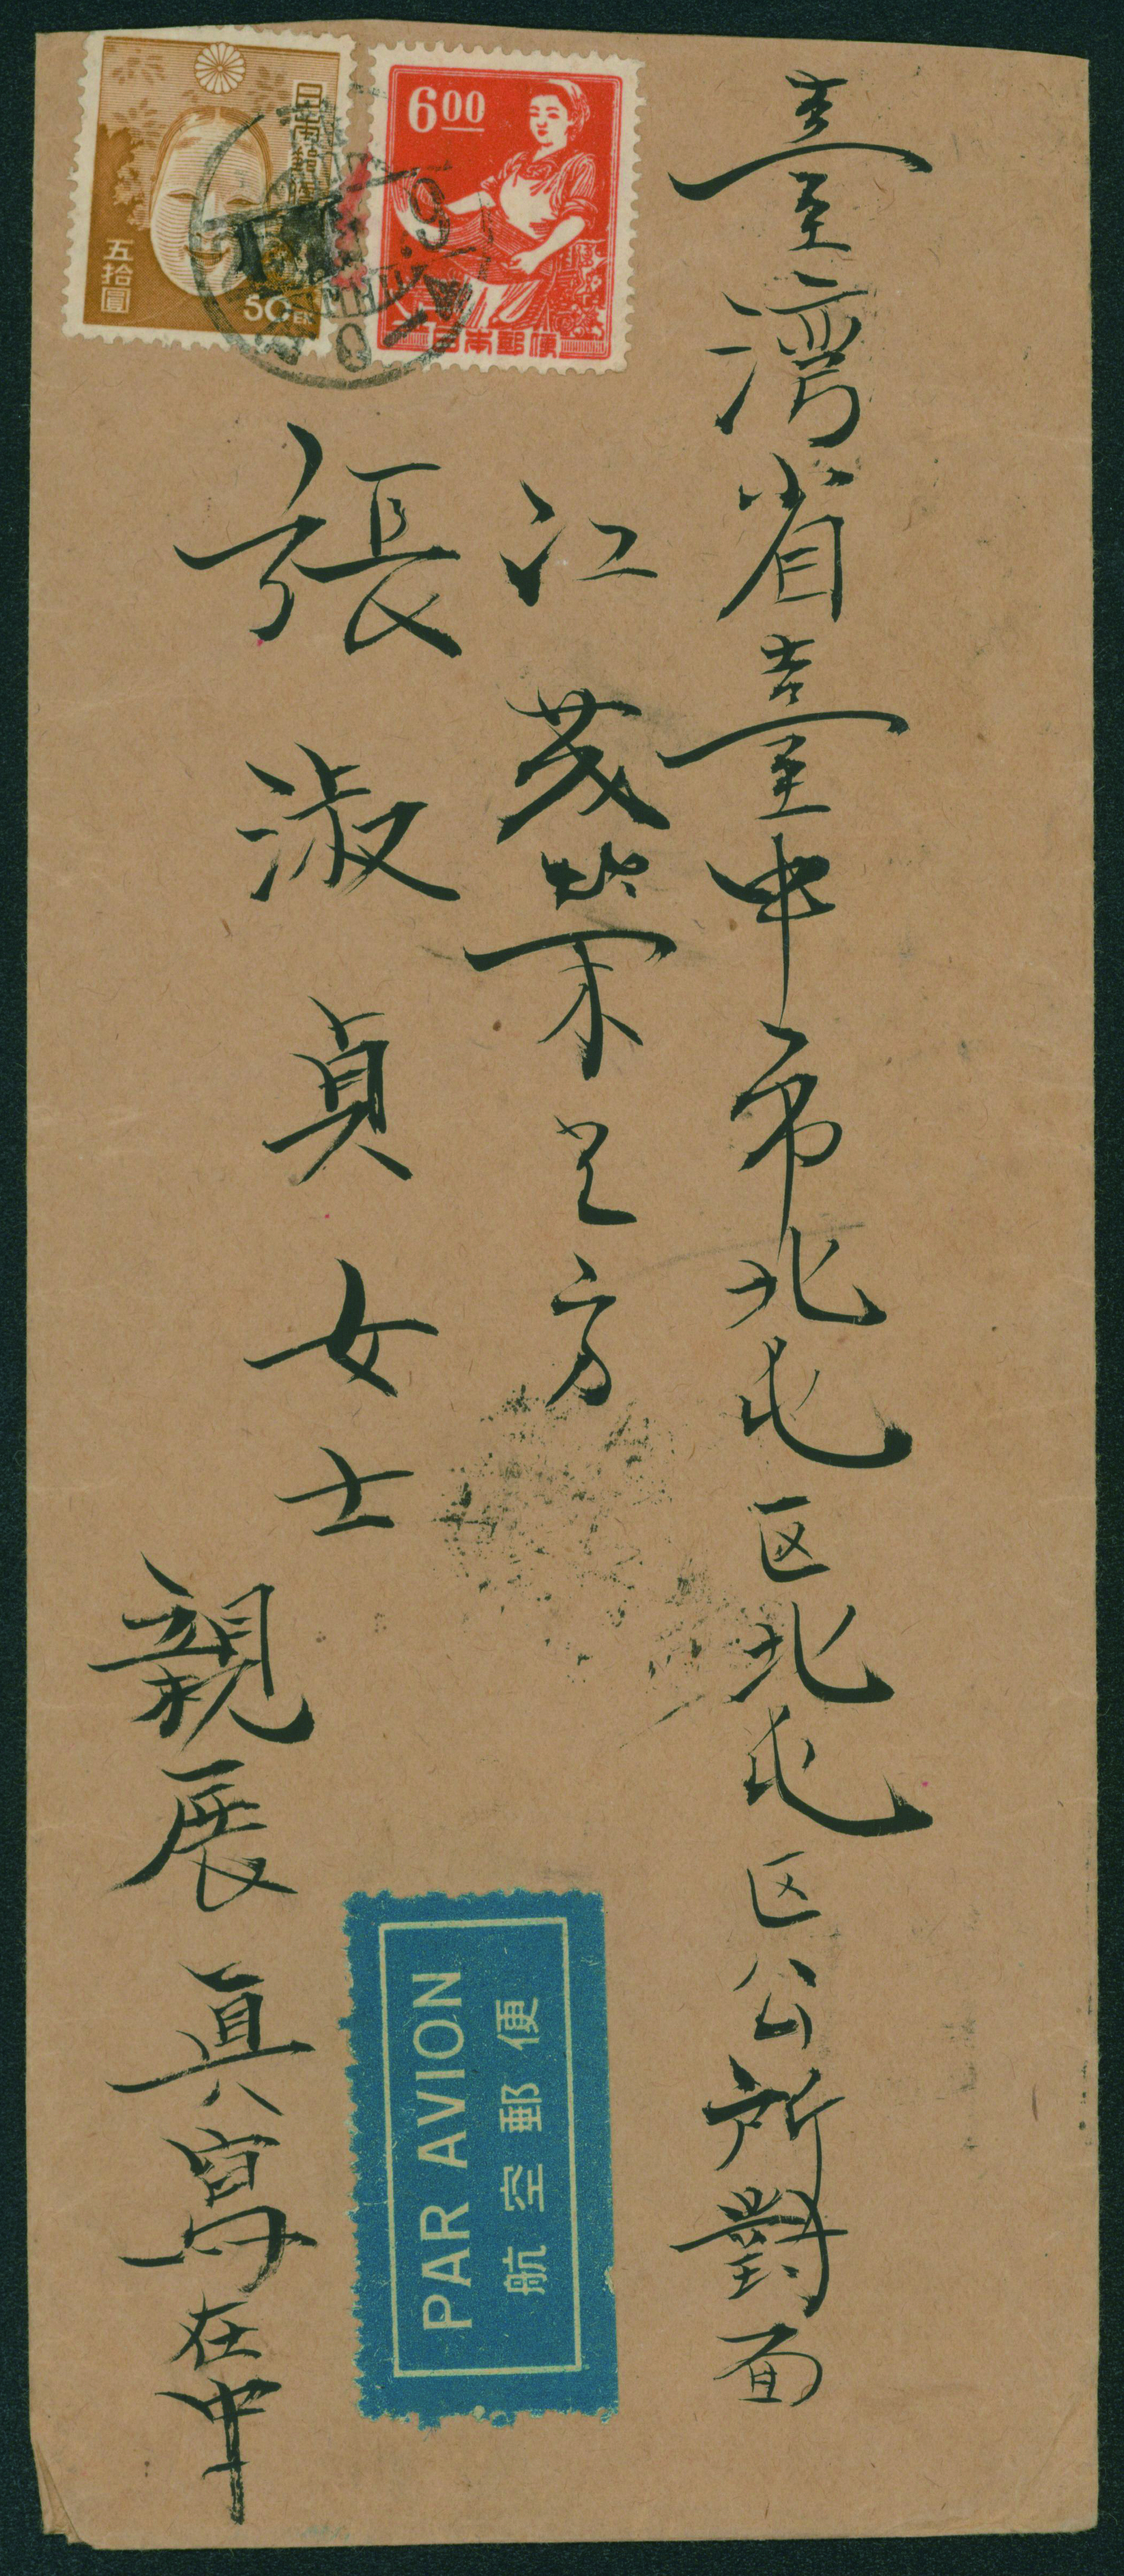 臺灣省臺中市北屯区北屯区公所對面
江茂榮之方
張淑貞女士
親展
真寫在中
日本郵便
五拾圓
50
600
日本郵便
PAR AVION
航空郵便